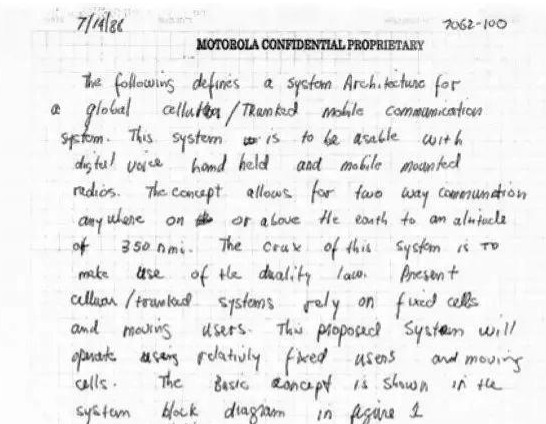 7/14/88 7062-100
MOTOROLA CONFIDENTIAL PROPRIETARY
The following defines a system Architecture for
a global cellular/Trunked mobile communication
system. This system is to be usable with
digital voice hand held and mobile mounted
radios. The concept allows for two way communcation
anywhere on or above the earth to an altitude
of 350 nmi. The crux of this system is to
make use of the duality law. Present
celluar/trunked systems rely on fixed cells
and moving users. This proposed System will
operate using relativly fixed users and moving
cells. The Basic concept is shown in the
system block diagram in figure 1